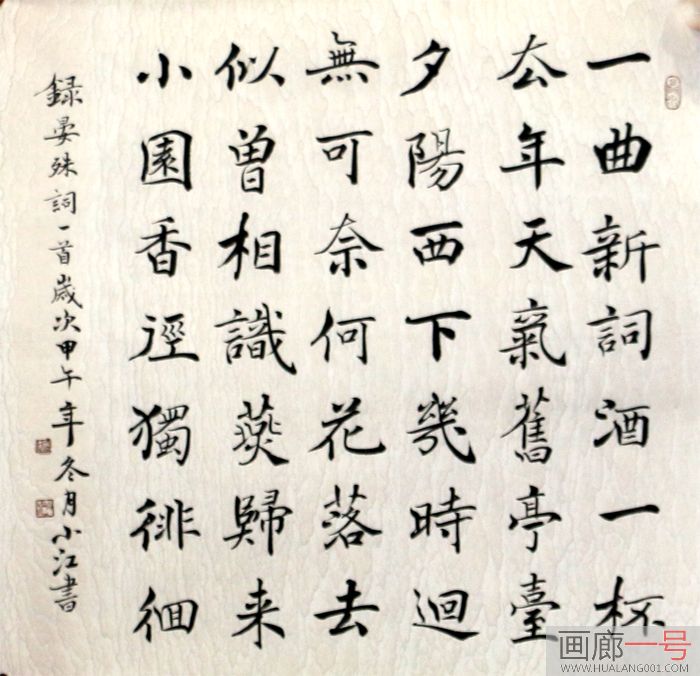 一曲新詞酒一杯
去年天氣舊亭臺
夕陽西下幾時迴
無可奈何花落去
似曾相識燕歸来
小園香徑獨徘徊
録晏殊詞一首歲次甲午年冬月小江書
画廊一号
WWW.HUALANG001.COM